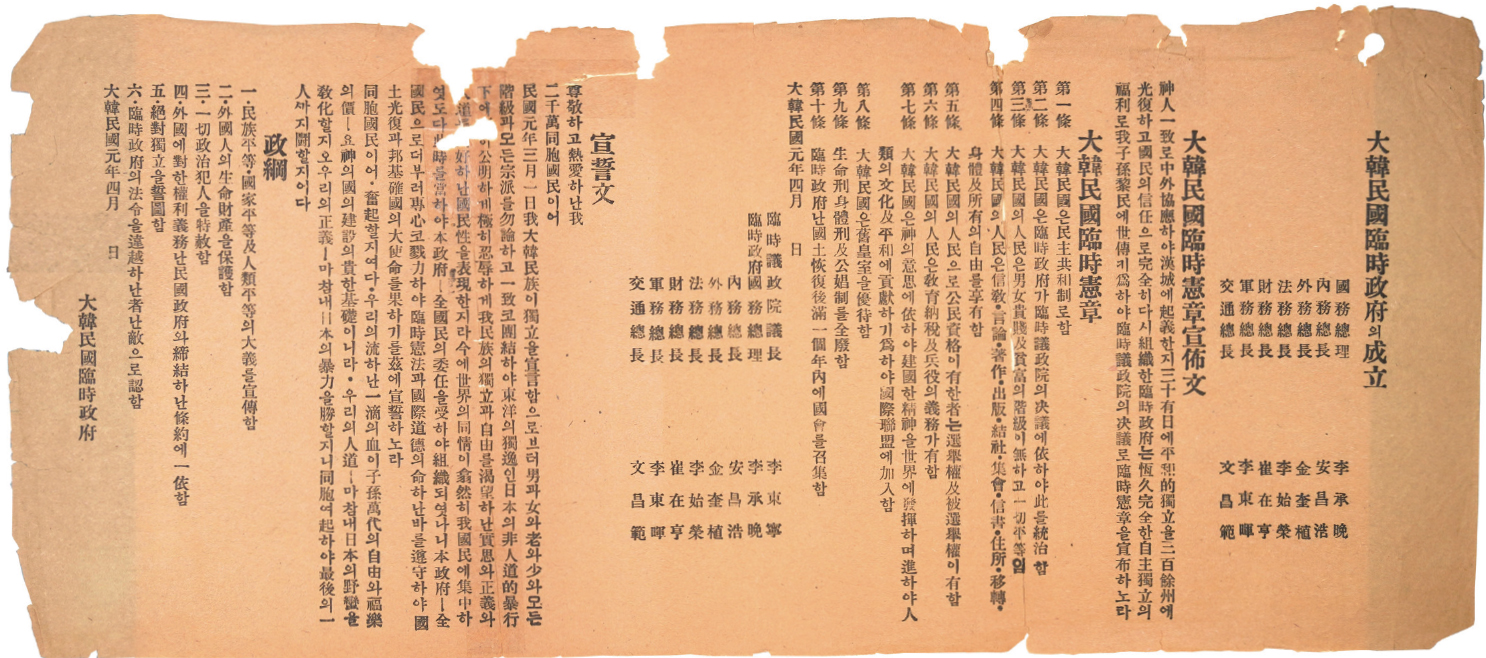 大韓民國臨時政府의成立
國務總理 李承晩
內務總長 安昌浩
外務總長 金奎植
法務總長 李始榮
財務總長 崔在亨
軍務總長 李東暉
交通總長 文昌範
大韓民國臨時憲章宣佈文
神人一致로中外協應하야漢城에起義한지三十有日에平和的獨立을三百餘州에
光復하고國民의信任으로完全히다시組織한臨時政府는恆久完全한自主獨立의
福利로我子孫黎民에世傳키爲하야臨時議政院의決議로臨時憲章을宣布하노라
大韓民國臨時憲章
第一條 大韓民國은民主共和制로함
第二條 大韓民國은臨時政府가臨時議政院의決議에依하야此를統治함
第三條 大韓民國의人民은男女貴賤及貧富의階級이無하고一切平等임
第四條 大韓民國의人民은信敎·言論·著作·出版·結社·集會·信書·住所·移轉·
身體及所有의自由를享有함
第五條 大韓民國의人民으로公民資格이有한者는選擧權及被選擧權이有함
第六條 大韓民國의人民은敎育納稅及兵役의義務가有함
第七條 大韓民國은神의意思에依하야建國한精神을世界에發揮하며進하야人
類의文化及平和에貢獻하기爲하야國際聯盟에加入함
第八條 大韓民國은舊皇室을優待함
第九條 生命刑身體刑及公娼制를全廢함
第十條 臨時政府난國土恢復後滿一個年內에國會를召集함
大韓民國元年四月 日
臨時議政院議長 李東寧
臨時政府國務總理 李承晩
內務總長 安昌浩
外務總長 金奎植
法務總長 李始榮
財務總長 崔在亨
軍務總長 李東暉
交通總長 文昌範
宣誓文
尊敬하고熱愛하난我
二千萬同胞國民이어
民國元年三月一日我大韓民族이獨立을宣言함으로브터男과女와老와少와모든
階級과모든宗派를勿論하고一致코團結하야東洋의獨逸인日本의非人道的暴行
下에 公明하게極히忍辱하게我民族의獨立과自由를渴望하난實思와正義와
人道 好하난國民性을表現한지라今에世界의同情이翕然히我國民에集中하
엿도다此時를當하야本政府ㅣ全國民의委任을受하야組織되엿나니本政府ㅣ全
國民으로더부러專心코戮力하야臨時憲法과國際道德의命하난바를遵守하야國
土光復과邦基確國의大使命를果하기를玆에宣誓하노라
同胞國民이어·奮起할지여다·우리의流하난一滴의血이子孫萬代의自由와福樂
의價ㅣ요神의國의建設의貴한基礎이니라·우리의人道ㅣ마참내日本의野蠻을
敎化할지오우리의正義ㅣ마참내日本의暴力을勝할지니同胞여起하야最後의一
人까지鬪할지어다
政綱
一·民族平等·國家平等及人類平等의大義를宣傳함
二·外國人의生命財產을保護함
三·一切政治犯人을特赦함
四·外國에對한權利義務난民國政府와締結하난條約에一依함
五·絕對獨立을誓圖함
六·臨時政府의法令을違越하난者난敵으로認함
大韓民國元年四月 日
大韓民國臨時政府